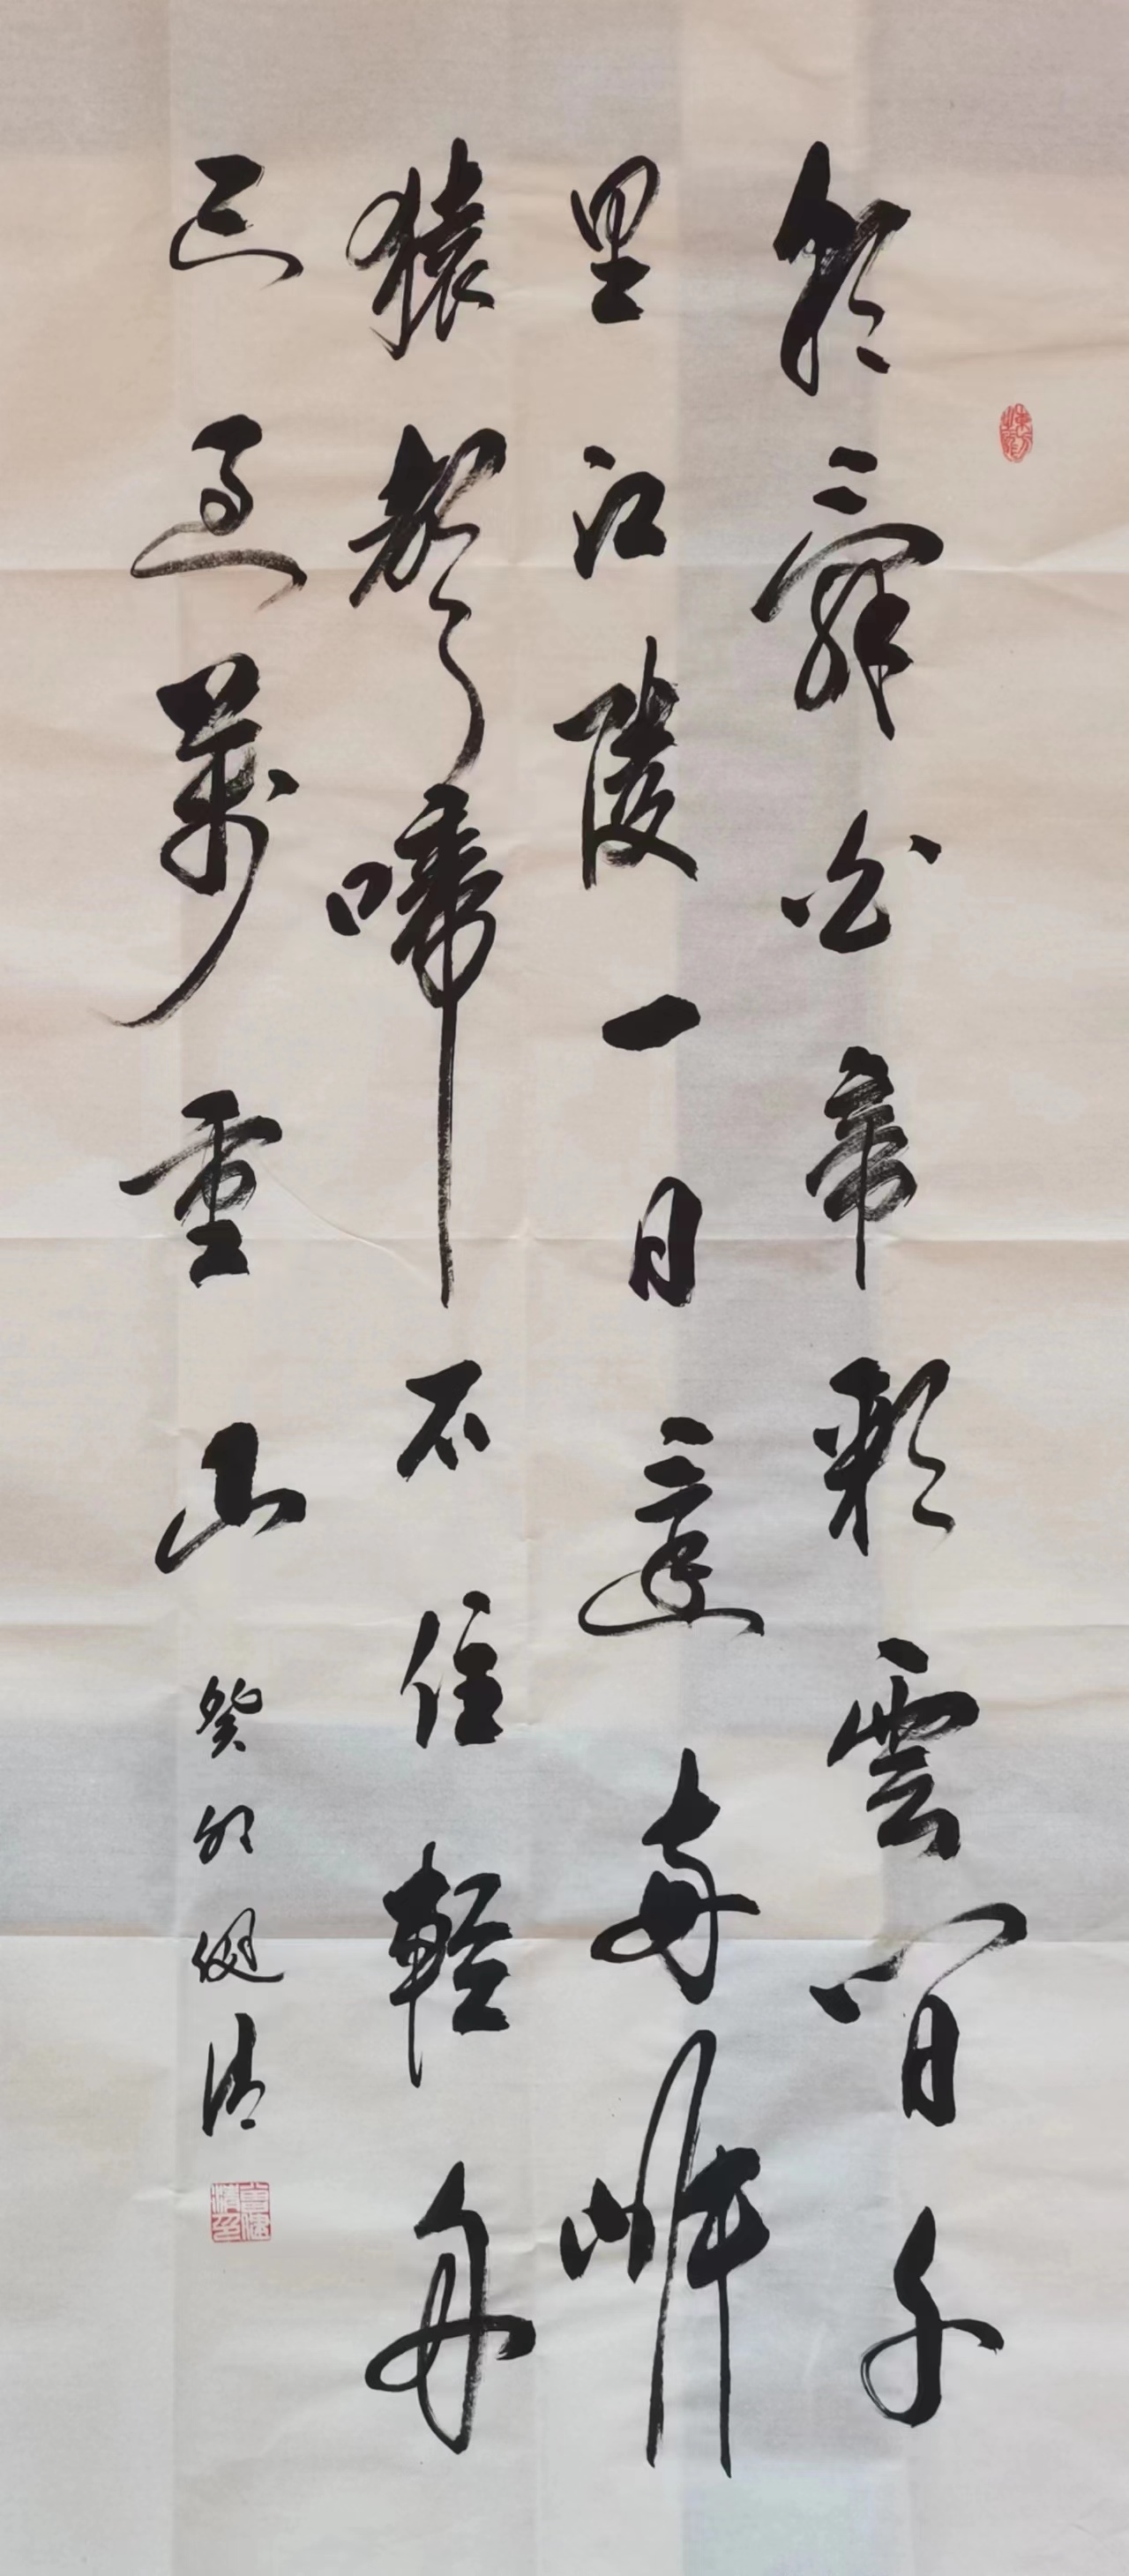 朝辭白帝彩雲間千
里江陵一日還兩岸
猿聲啼不住輕舟
已過萬重山 癸卯健清